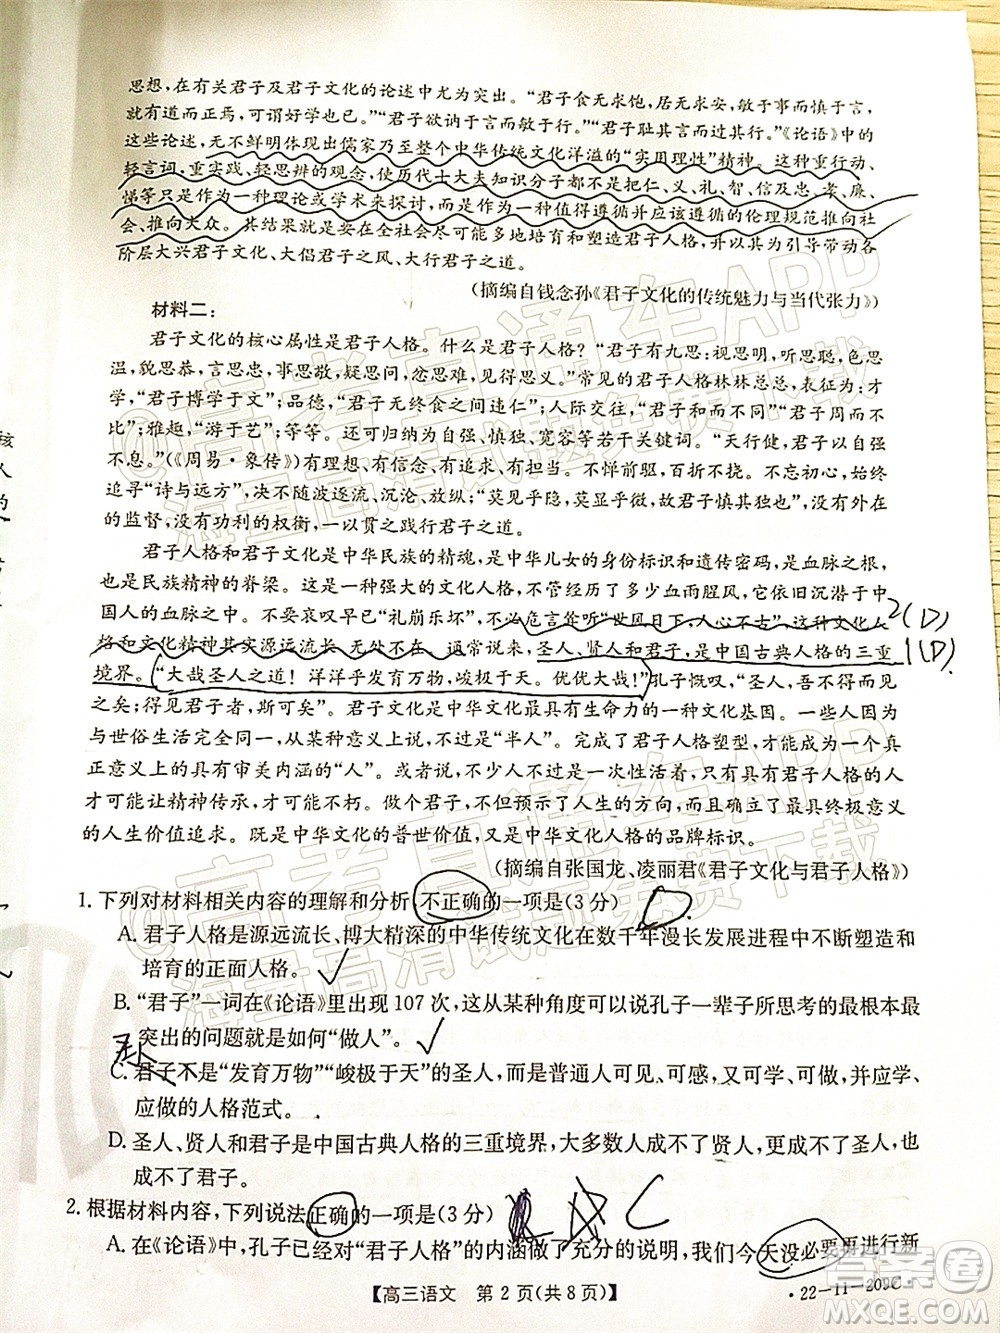 思想，在有关君子及君子文化的论述中尤为突出。“君子食无求饱，居无求安，敏于事而慎于言，
就有道而正焉，可谓好学也已。”“君子欲讷于言而敏于行。”“君子耻其言而过其行。”《论语》中的
这些论述，无不鲜明体现出儒家乃至整个中华传统文化洋溢的“实用理性”精神。这种重行动、
轻言词，重实践、轻思辨的观念，使历代士大夫知识分子都不是把仁、义、礼、智、信及忠、孝、廉、
悌等只是作为一种理论或学术来探讨，而是作为一种值得遵循并应该遵循的伦理规范推向社
会、推向大众。其结果就是在全社会尽可能多地培育和塑造君子人格，并以其为引导带动各
阶层大兴君子文化、大倡君子之风、大行君子之道。
（摘编自钱念孙《君子文化的传统魅力与当代张力》）
材料二：
君子文化的核心属性是君子人格。什么是君子人格？“君子有九思：视思明，听思聪，色思
温，貌思恭，言思忠，事思敬，疑思问，忿思难，见得思义。”常见的君子人格林林总总，表征为：才
学，“君子博学于文”；品德，“君子无终食之间违仁”；人际交往，“君子和而不同”“君子周而不
比”；雅趣，“游于艺”；等等。自强、慎独、宽容等可成若干关键词。“天行健，君子以自强
不息。”（《周易·象传》）有理想、有信念、有追求、有担当。不惮前驱，百折不挠。不忘初心，始终
追寻“诗与远方”，决不随波逐流、沉沦、放纵；“莫见乎隐，莫显乎微，故君子慎其独也”，没有外在
的监督，没有功利的权衡，一以贯之践行君子之道。
君子人格和君子文化是中华民族的精魂，是中华儿女的身份标识和遗传密码，是中国人
也是民族精神的脊梁。这是一种强大的文化人格，不管经历了多少血雨腥风，它依旧沉潜于中
国人的血脉之中。不要哀叹早已“礼崩乐坏”，不必危言耸听“世风日下，人心不古”，这种文化人
格和文化精神其实源远流长、无处不在。通常说来，圣人、贤人和君子，是中国古典人格的三重
境界。“大哉圣人之道！洋洋乎发育万物，峻极于天。优优大哉！”孔子慨叹，“圣人，吾不得而见
之矣；得见君子者，斯可矣”。君子文化是中华民族最具自然生命力的一种文化基因。一些人因
与世俗生活完全同一，从某种意义上讲，只是“半人”。完成了君子人格塑型，才可以成为真正意
义上的具有审美内涵的“人”。或者说，人之为人，正是君子人格的赋能。达到君子人格的人
才可能有精神传承，才可能不朽。做个君子，不但预示了人生的方向，而且体现了最具终极意义
的人生价值追求。既是中华文化的普世价值，又是中华文化人格的品牌标识。
（摘编自张国龙、凌丽君《君子文化与君子人格》）
2(D)
1(D)
1. 下列对材料相关内容的理解和分析，不正确的一项是（3分） D
A. 君子人格是源远流长、博大精深的中华传统文化在数千年漫长发展进程中不断塑造和
培育的正面人格。
B. “君子”一词在《论语》里出现107次，这从某种角度可以说孔子一辈子所思考的最根本最
突出的问题就是如何“做人”。
C. 君子不是“发育万物”“峻极于天”的圣人，而是那些人人可见、可感，又可学、可做，并应学、
应做的人格范式。
D. 圣人、贤人和君子是中国古典人格的三重境界，大多数人成不了贤人，更成不了圣人，也
成不了君子。
2. 根据材料内容，下列说法正确的一项是（3分） C
A. 在《论语》中，孔子已经对“君子人格”的内涵做了充分的说明，我们今天没必要再进行新
【高三语文 第2页（共8页）】
·22-11-209C·
答案圈
@高考直通车APP
海量高清试题免费下载
@高考直通车APP
海量高清试题免费下载